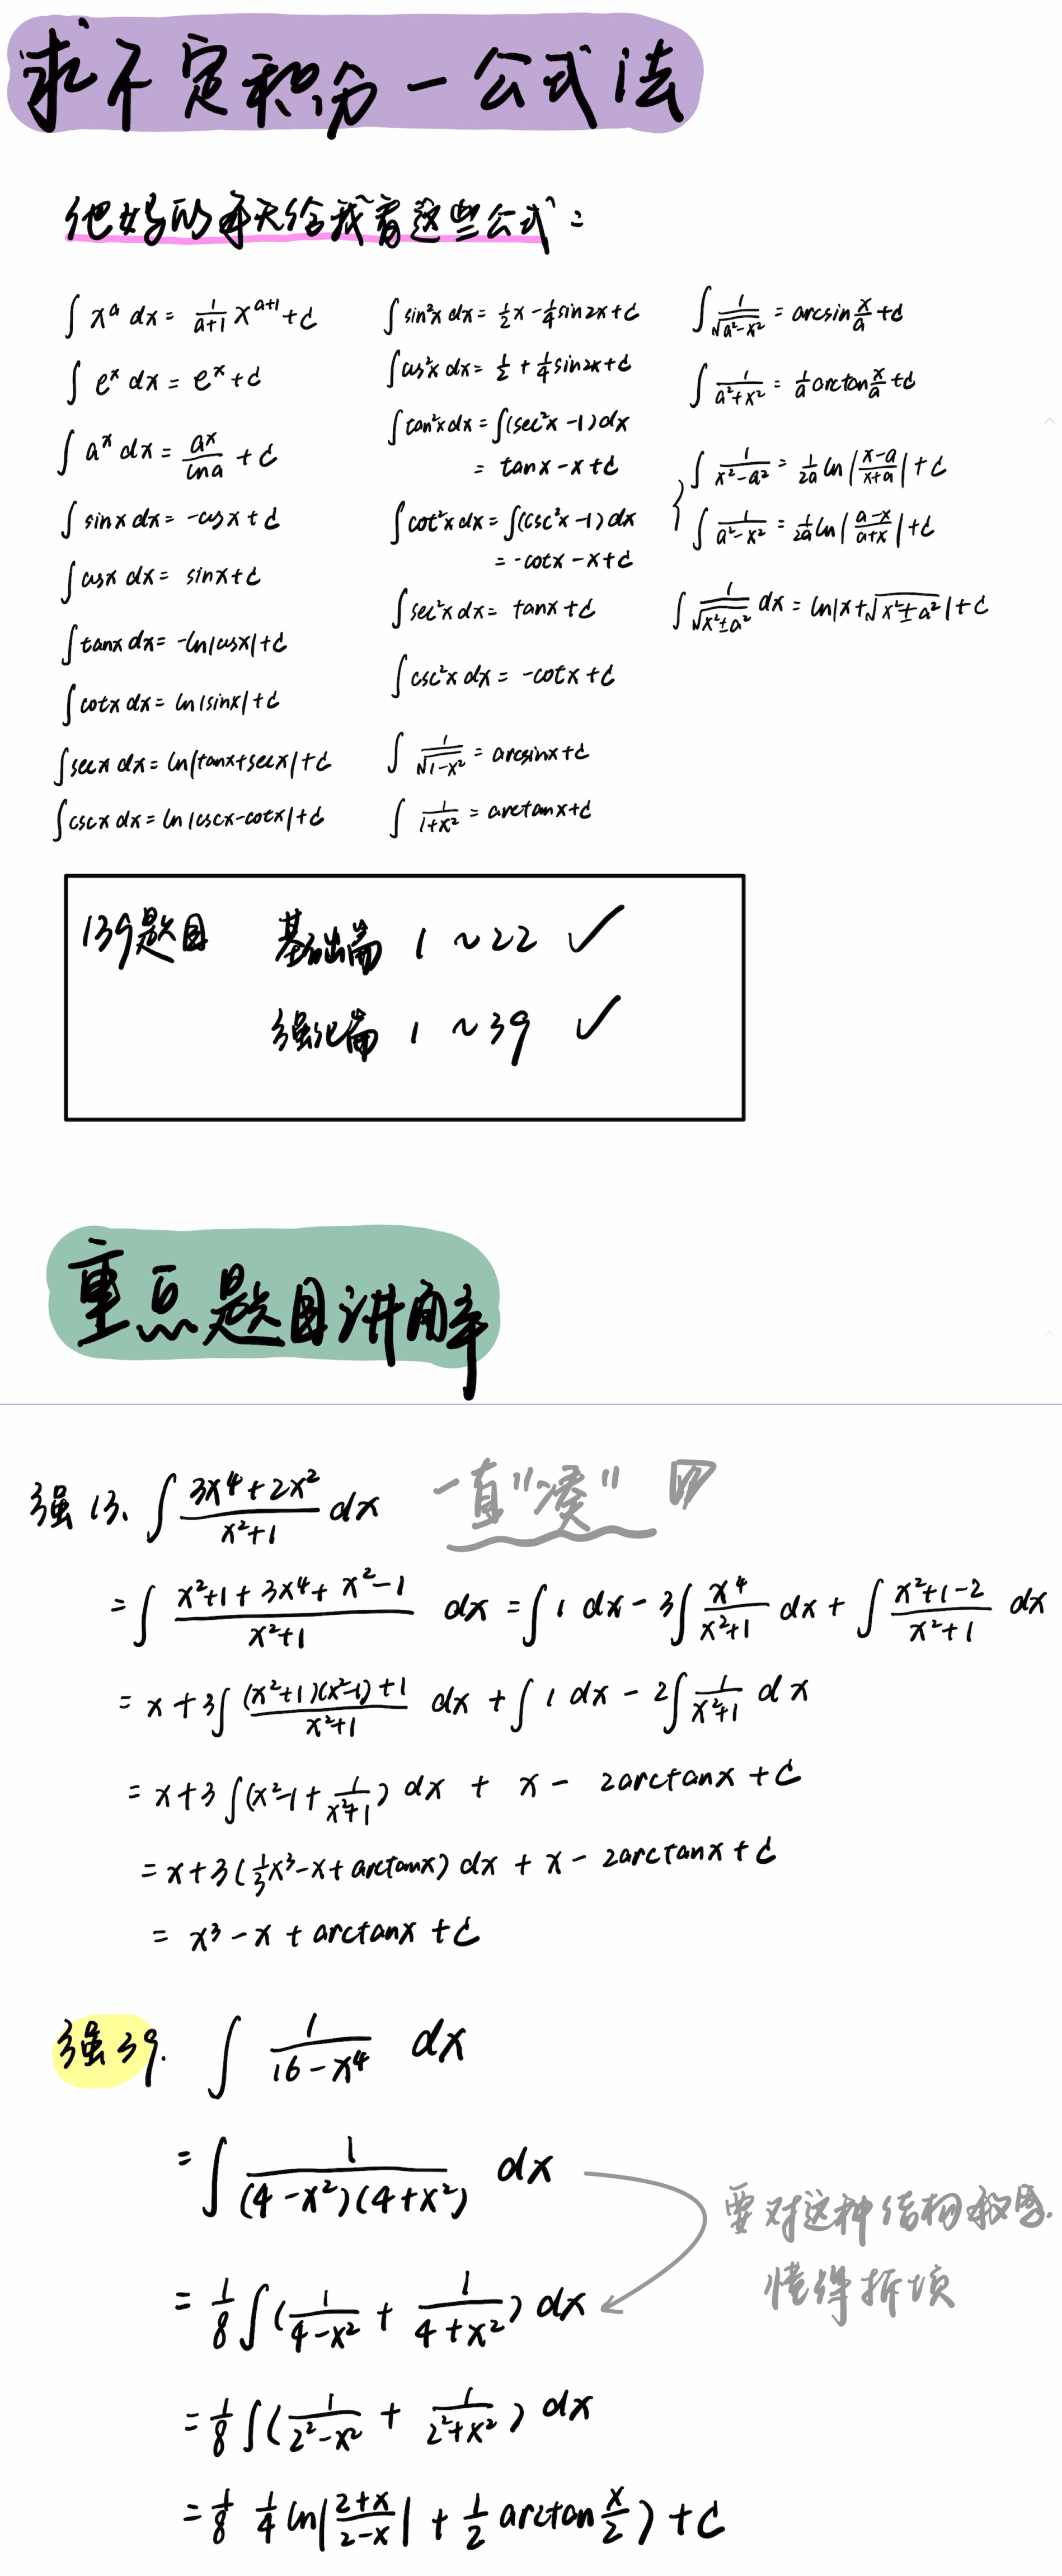 求不定积分一公式法
他妈的每天给我看这些公式：
∫ x^a dx = 1/(a+1) x^(a+1) + C
∫ e^x dx = e^x + C
∫ a^x dx = a^x/lna + C
∫ sinx dx = -cosx + C
∫ cosx dx = sinx + C
∫ tanx dx = -ln|cosx| + C
∫ cotx dx = ln|sinx| + C
∫ secx dx = ln|tanx+secx| + C
∫ cscx dx = ln|cscx-cotx| + C
∫ sin²x dx = 1/2 x - 1/4 sin2x + C
∫ cos²x dx = 1/2 + 1/4 sin2x + C
∫ tan²x dx = ∫(sec²x-1)dx
= tanx - x + C
∫ cot²x dx = ∫(csc²x-1)dx
= -cotx - x + C
∫ sec²x dx = tanx + C
∫ csc²x dx = -cotx + C
∫ 1/√(1-x²) = arcsinx + C
∫ 1/(1+x²) = arctanx + C
∫ 1/√(a²-x²) = arcsin x/a + C
∫ 1/(a²+x²) = 1/a arctan x/a + C
∫ 1/(x²-a²) = 1/2a ln|(x-a)/(x+a)| + C
∫ 1/(a²-x²) = 1/2a ln|(a-x)/(a+x)| + C
∫ 1/√(x²±a²) dx = ln|x+√(x²±a²)| + C
139题目 基础篇 1 ~22 ✓
强化篇 1 ~39 ✓
重点题目讲解
强 13、∫ (3x⁴+2x²)/(x²+1) dx 一直"凑"
= ∫ (x²+1+3x⁴+x²-1)/(x²+1) dx = ∫ 1 dx - 3∫ x⁴/(x²+1) dx + ∫ (x²+1-2)/(x²+1) dx
= x + 3∫ ((x²+1)(x²-1)+1)/(x²+1) dx + ∫ 1 dx - 2∫ 1/(x²+1) dx
= x + 3∫(x²-1+1/(x²+1)) dx + x - 2arctanx + C
= x + 3(1/3 x³-x+arctanx) dx + x - 2arctanx + C
= x³ - x + arctanx + C
强39. ∫ 1/(16-x⁴) dx
= ∫ 1/((4-x²)(4+x²)) dx
要对这种结构敏感.
懂得拆项
= 1/8 ∫(1/(4-x²) + 1/(4+x²)) dx
= 1/8 ∫(1/(2²-x²) + 1/(2²+x²)) dx
= 1/8 1/4 ln|(2+x)/(2-x)| + 1/2 arctan x/2) + C